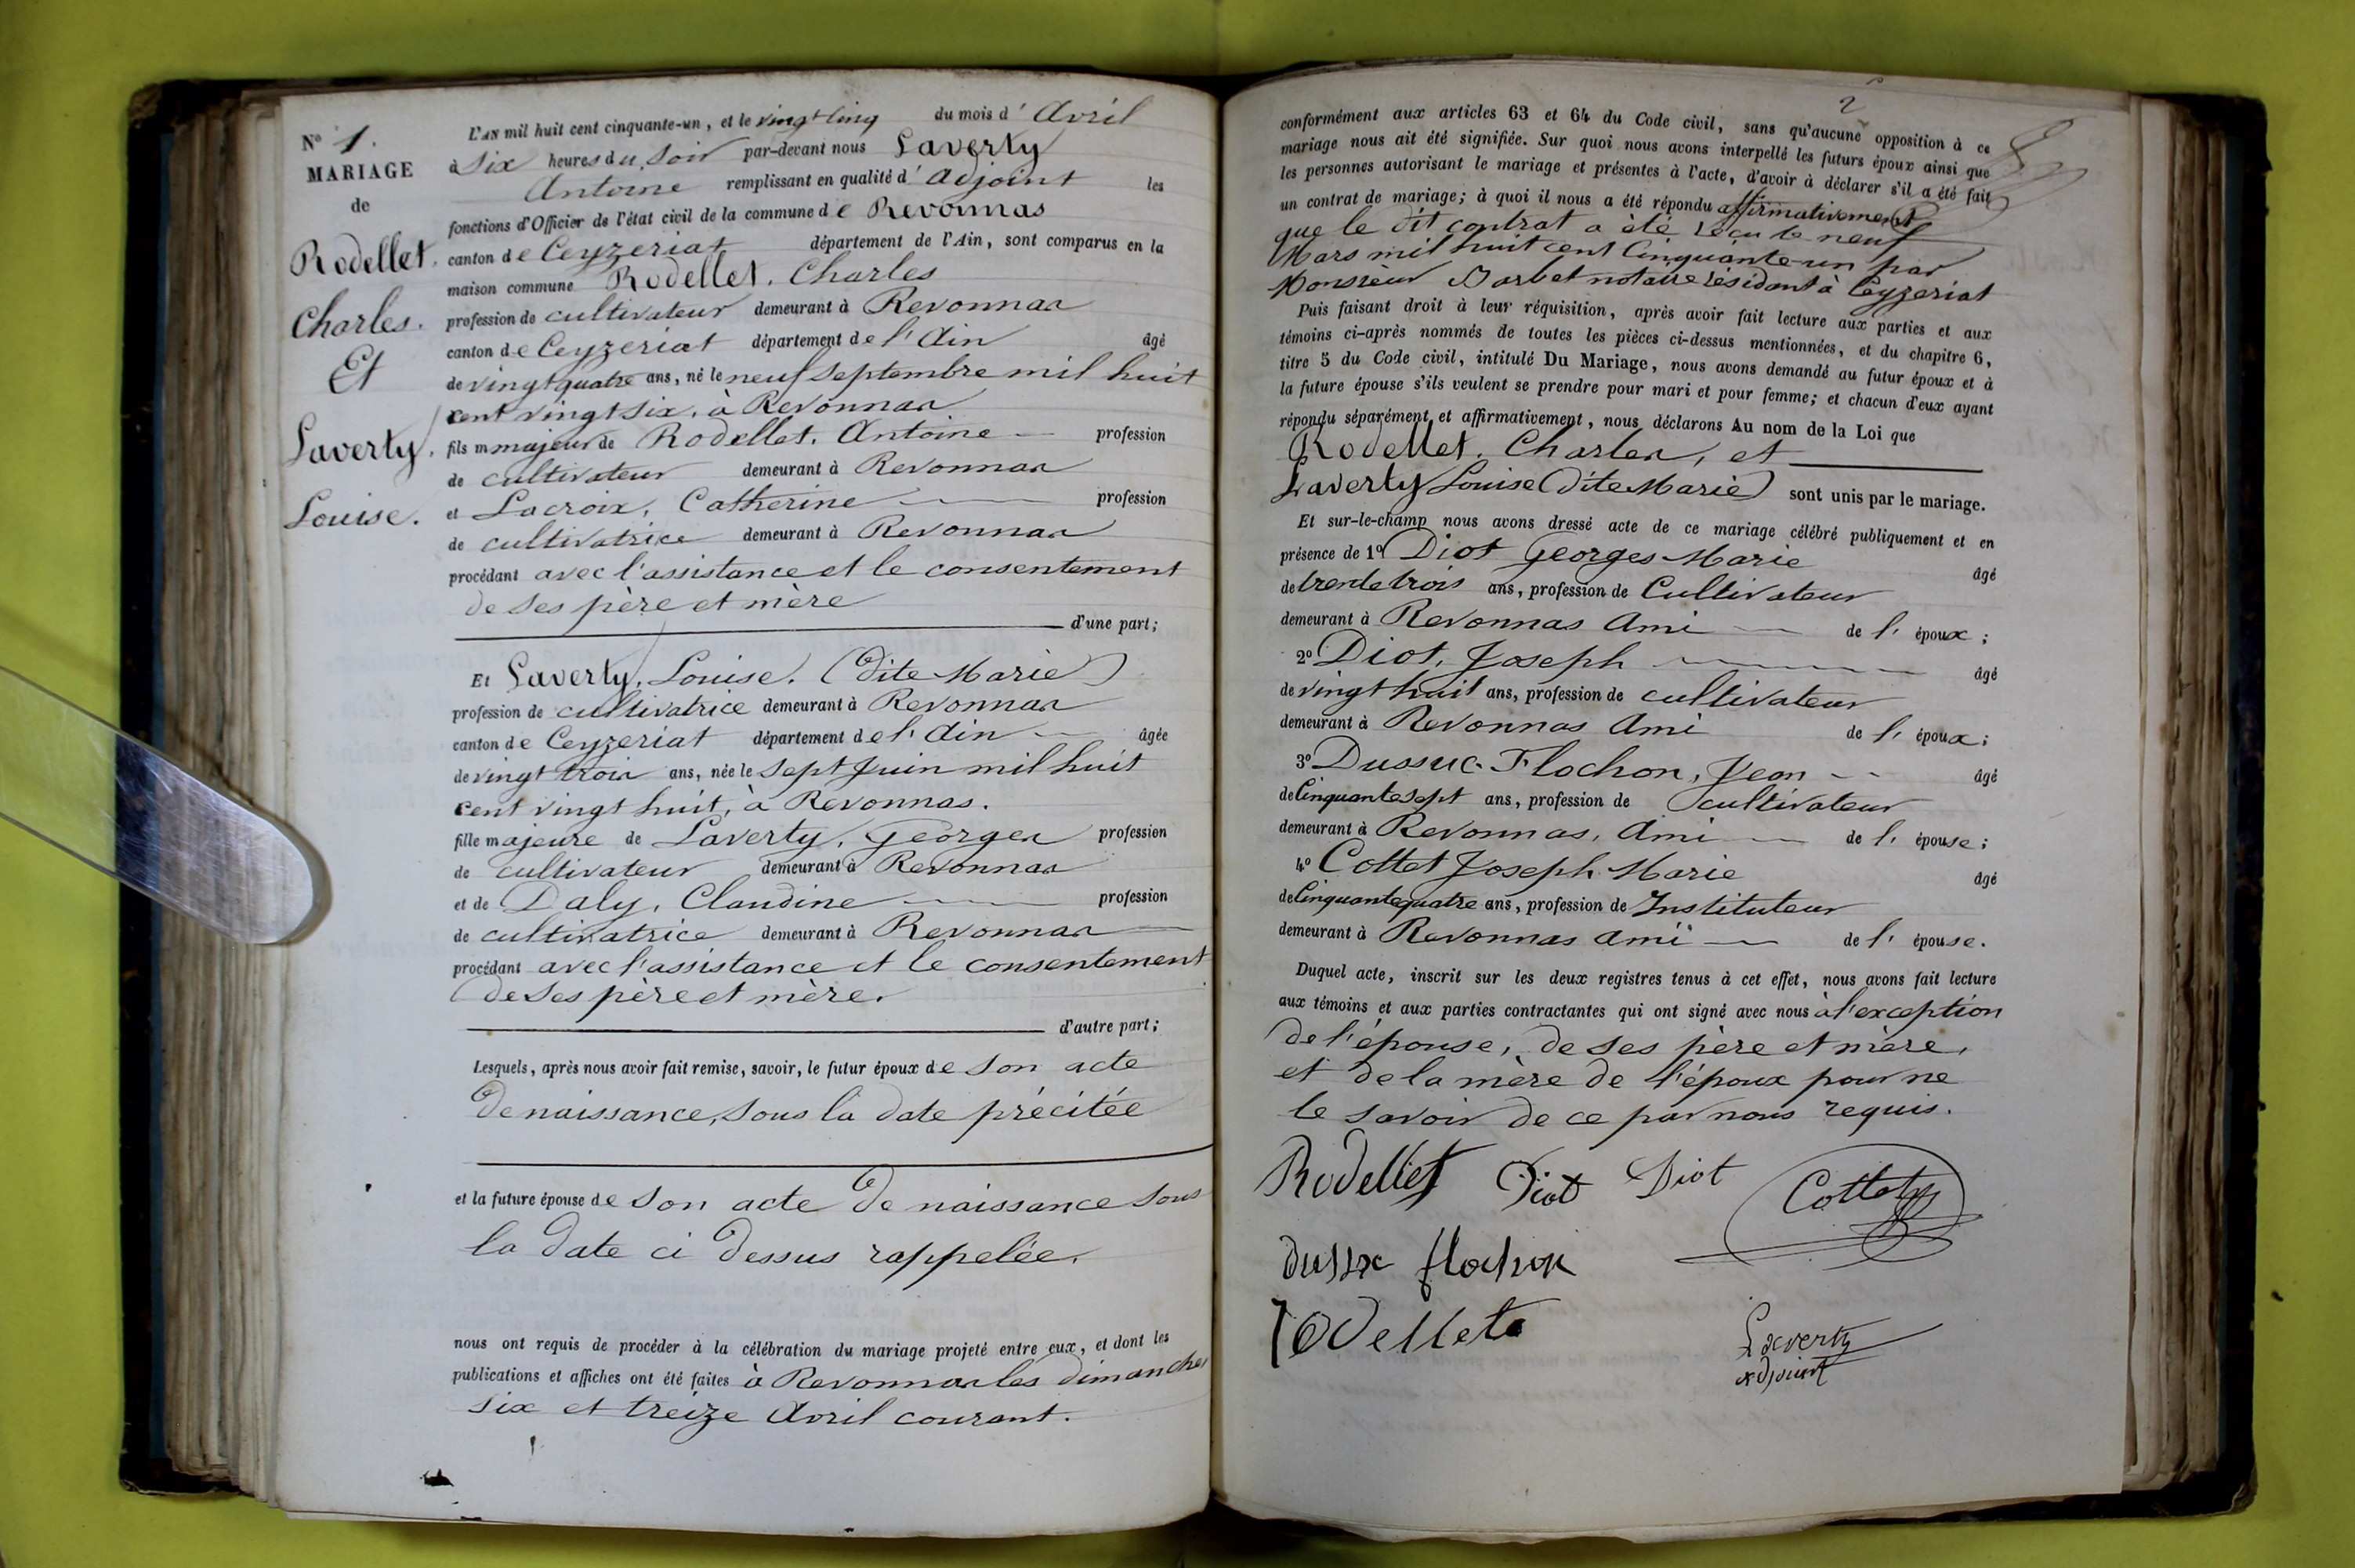 N° 1.
MARIAGE
de
Rodellet.
Charles.
Et
Laverty.
Louise.
L'AN mil huit cent cinquante-un, et le vingt cinq du mois d'Avril
à Six heures du Soir par-devant nous Laverty
Antoine remplissant en qualité d'Adjoint les
fonctions d'Officier de l'état civil de la commune de Revonnas
canton de Ceyzeriat département de l'Ain, sont comparus en la
maison commune Rodellet. Charles
profession de cultivateur demeurant à Revonnas
canton de Ceyzeriat département de l'Ain âgé
de vingt quatre ans, né le neuf Septembre mil huit
cent vingt six, à Revonnas
fils majeur de Rodellet. Antoine profession
de cultivateur demeurant à Revonnas
et Lacroix, Catherine profession
de cultivatrice demeurant à Revonnas
procédant avec l'assistance et le consentement
de Ses père et mère
d'une part;
Et Laverty, Louise. (dite Marie)
profession de cultivatrice demeurant à Revonnas
canton de Ceyzeriat département de l'Ain âgée
de vingt trois ans, née le Sept Juin mil huit
cent vingt huit, à Revonnas.
fille majeure de Laverty, Georges profession
de cultivateur demeurant à Revonnas
et de Daly, Claudine profession
de cultivatrice demeurant à Revonnas
procédant avec l'assistance et le consentement
de Ses père et mère.
d'autre part;
Lesquels, après nous avoir fait remise, savoir, le futur époux de Son acte
de naissance, Sous la date précitée
et la future épouse de Son acte de naissance Sous
la date ci dessus rappelée.
nous ont requis de procéder à la célébration du mariage projeté entre eux, et dont les
publications et affiches ont été faites à Revonnas les dimanches
Six et treize Avril courant.
2
conformément aux articles 63 et 64 du Code civil, sans qu'aucune opposition à ce
mariage nous ait été signifiée. Sur quoi nous avons interpellé les futurs époux ainsi que
les personnes autorisant le mariage et présentes à l'acte, d'avoir à déclarer s'il a été fait
un contrat de mariage; à quoi il nous a été répondu affirmativement
que le dit contrat a été reçu le neuf
Mars mil huit cent Cinquante-un par
Monsieur Barbet notaire résidant à Ceyzeriat
Puis faisant droit à leur réquisition, après avoir fait lecture aux parties et aux
témoins ci-après nommés de toutes les pièces ci-dessus mentionnées, et du chapitre 6,
titre 5 du Code civil, intitulé Du Mariage, nous avons demandé au futur époux et à
la future épouse s'ils veulent se prendre pour mari et pour femme; et chacun d'eux ayant
répondu séparément et affirmativement, nous déclarons Au nom de la Loi que
Rodellet. Charles, et
Laverty Louise (dite Marie) sont unis par le mariage.
Et sur-le-champ nous avons dressé acte de ce mariage célébré publiquement et en
présence de 1° Diot Georges Marie âgé
de trente trois ans, profession de Cultivateur
demeurant à Revonnas Ami de l'époux;
2° Diot, Joseph âgé
de vingt huit ans, profession de cultivateur
demeurant à Revonnas Ami de l'époux;
3° Dussuc-Flochon, Jean âgé
de Cinquante sept ans, profession de cultivateur
demeurant à Revonnas, Ami de l'épouse;
4° Cottet Joseph Marie âgé
de Cinquante quatre ans, profession de Instituteur
demeurant à Revonnas Ami de l'épouse.
Duquel acte, inscrit sur les deux registres tenus à cet effet, nous avons fait lecture
aux témoins et aux parties contractantes qui ont signé avec nous à l'exception
de l'épouse, de Ses père et mère,
et de la mère de l'époux pour ne
le Savoir de ce par nous requis.
Rodellet Diot Diot Cottet
dussuc flochon
rodellet
Laverty
adjoint